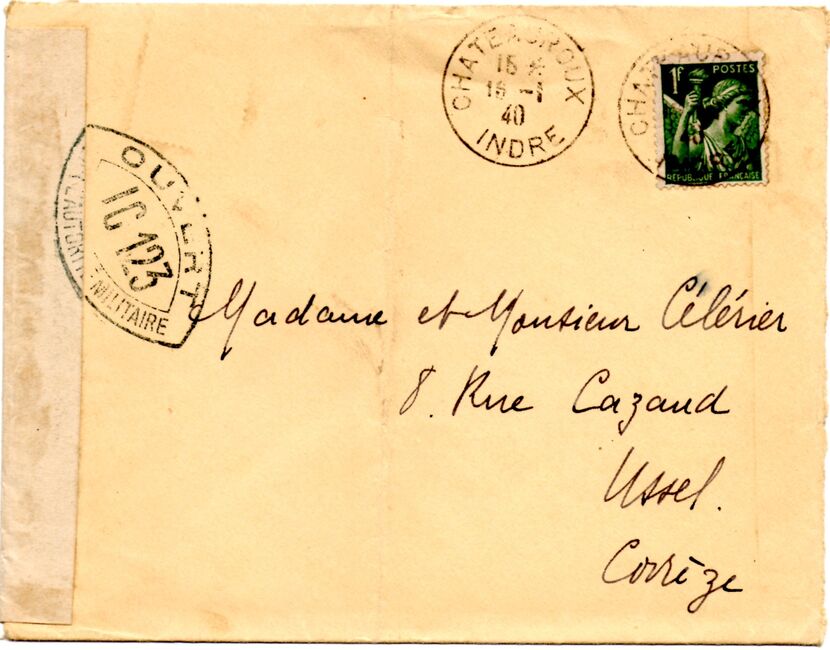 CHATEAUROUX
15 *
16 -1
40
INDRE
1F POSTES
RÉPUBLIQUE FRANÇAISE
OUVERT
IC 123
MILITAIRE
Madame et Monsieur Célérier
8. Rue Cazaud
Ussel.
Corrèze